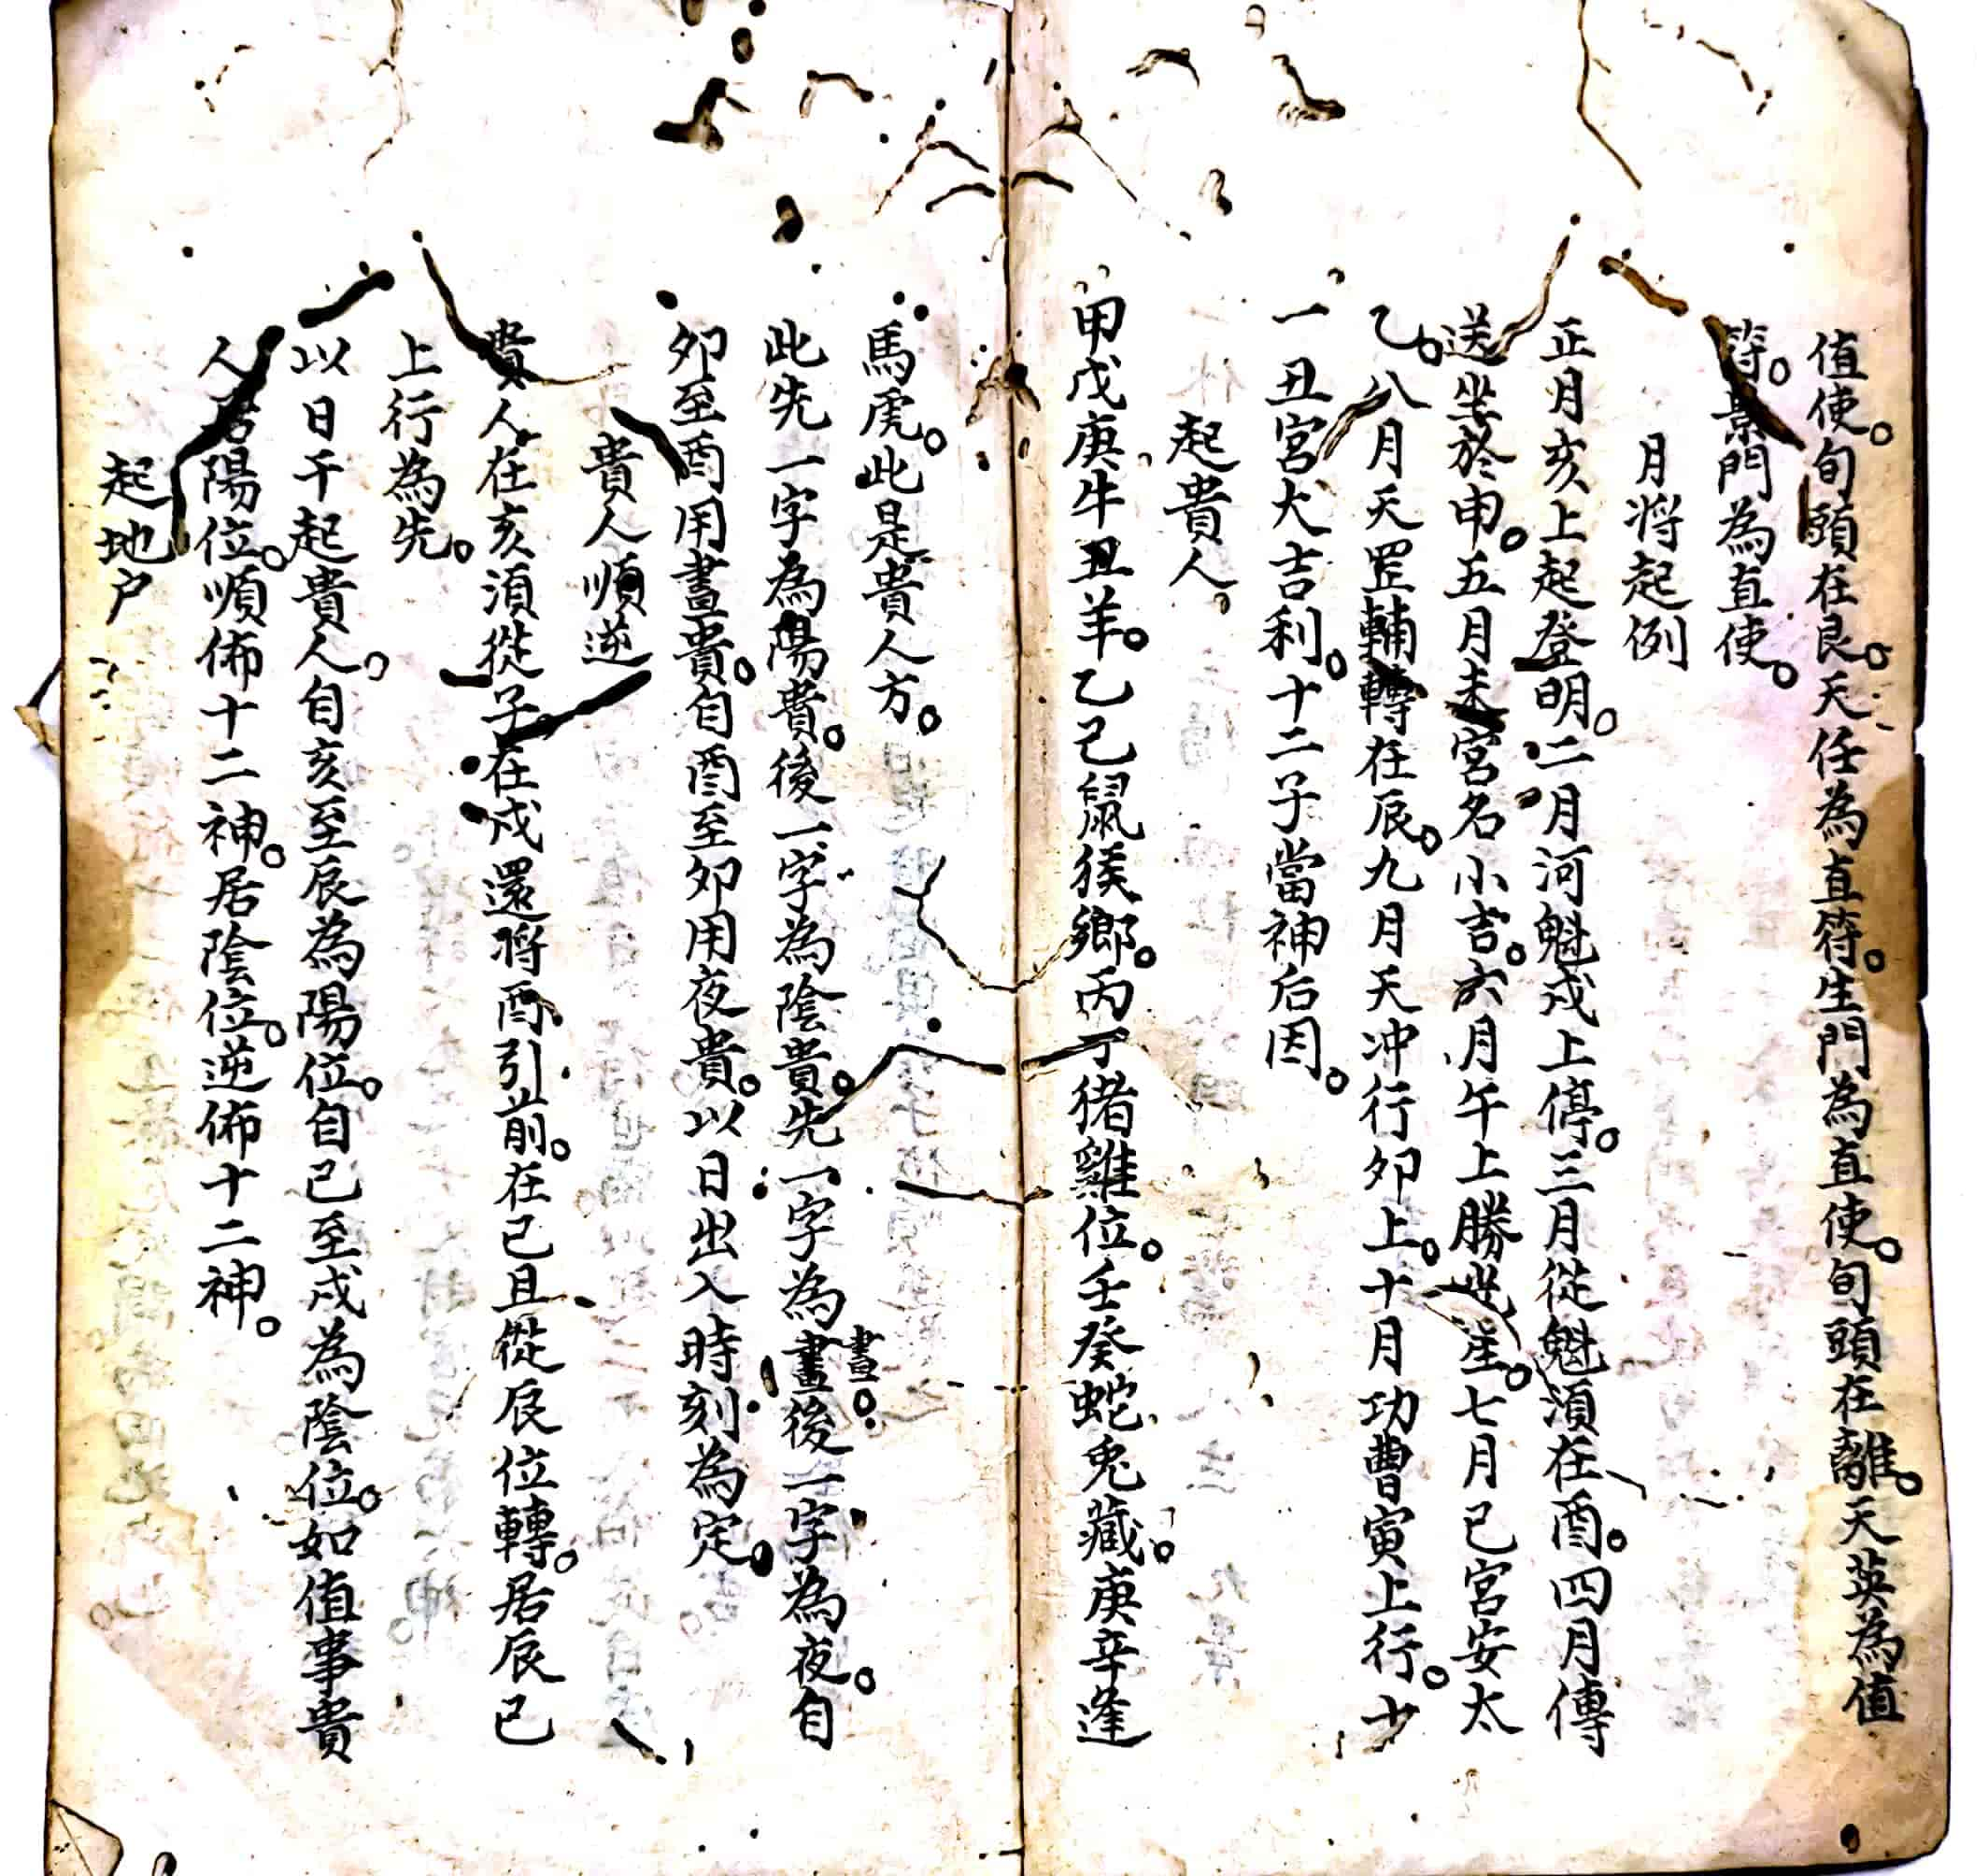 值使。旬頭在艮。天任為直符。生門為直使。旬頭在離。天英為值
符。景門為直使。
月將起例
正月亥上起登明。二月河魁戌上停。三月從魁須在酉。四月傳
送坐於申。五月未宮名小吉。六月午上勝光。七月巳宮安太
乙。八月天罡輔轉在辰。九月天冲行卯上。十月功曹寅上行。十
一丑宮大吉利。十二子當神后因。
起貴人。
甲戊庚牛丑羊。乙己鼠猴鄉。丙丁猪雞位。壬癸蛇兔藏。庚辛逢
馬虎。此是貴人方。
此先一字為陽貴。後一字為陰貴。先一字為晝後一字為夜。自
晝。
卯至酉用晝貴。自酉至卯用夜貴。以日出入時刻為定。
貴人順逆
貴人在亥須從子在戌還將酉引前。在己且從辰位轉。居辰已
上行為先。
以日干起貴人。自亥至辰為陽位。自已至戌為陰位。如值事貴
人居陽位。順佈十二神。居陰位。逆佈十二神。
起地户